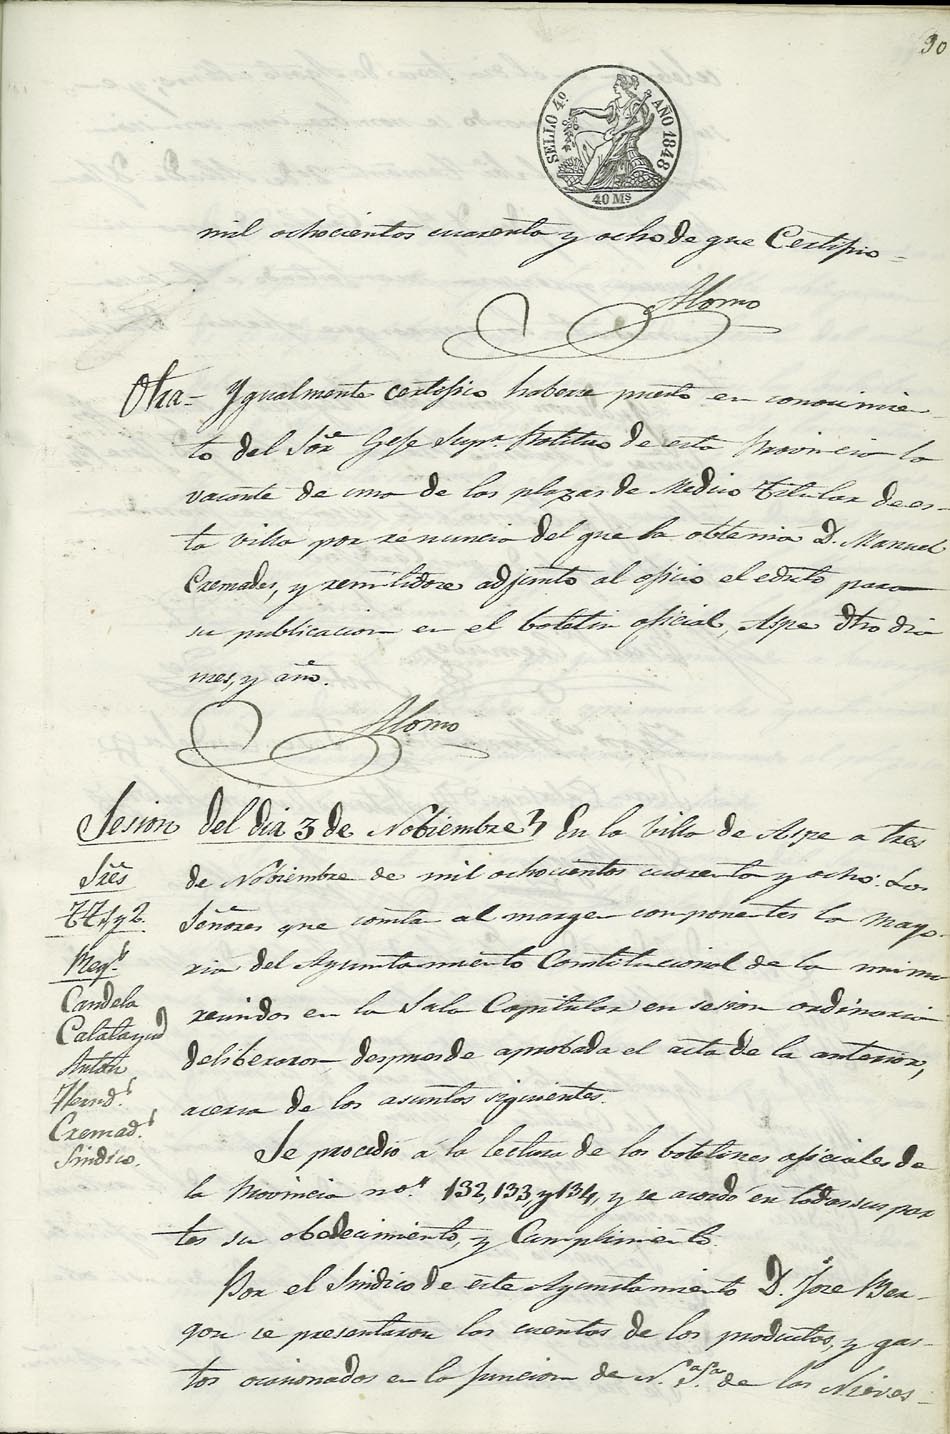 90
SELLO 4º AÑO 1848
40 Ms
mil ochocientos cuarenta y ocho de que Certifico =
Alonso
Otra = Ygualmente certifico haberse puesto en conocimien
to del Sōr Gefe Supr. Politico de esta Provincia la
vacante de una de las plazas de Medico titular de es-
ta villa por renuncia del que la obtenia D. Manuel
Cremades, y remitidose adjunto al oficio el edicto para
su publicacion en el boletin oficial, Aspe dho dia
mes, y año.
Alonso
Sesion del dia 3 de Nobiembre En la Villa de Aspe a tres
Sres
de Nobiembre de mil ochocientos cuarenta y ocho: Los
TT 1 y 2.
Señores que consta al margen componentes la mayo-
Regs.
ria del Ayuntamiento Constitucional de la misma
Candela
reunidos en la Sala Capitular en sesion ordinaria
Calatayud
deliberaron despues de aprobada el acta de la anterior,
Anton
acerca de los asuntos siguientes.
Hernds
Cremads
Sindico.
Se procedió á la lectura de los botetines oficiales de
la Provincia nos. 132, 133, y 134, y se acordó en todas sus par
tes su obedecimiento, y Cumplimiento.
Por el Sindico de este Ayuntamiento D. Jose Ber-
gon se presentaron las cuentas de los productos, y gas-
tos ocasionados en la funcion de N. S. de las Nieves-